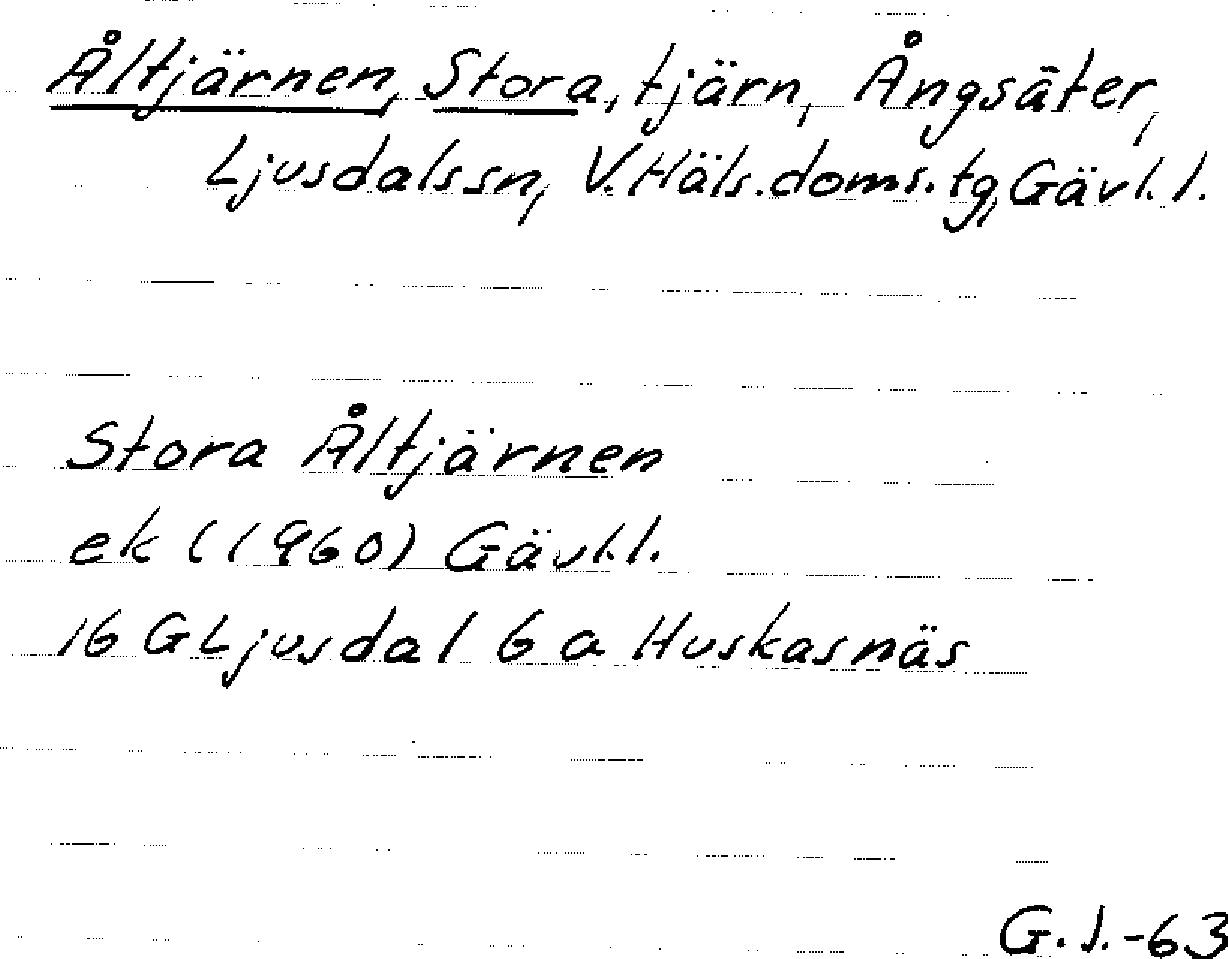 Åltjärnen, Stora, tjärn, Ångsäter,
Ljusdalssn, V. Häls. doms. tg, Gävl. l.
Stora Åltjärnen
ek (1960) Gävl. l.
16 G Ljusdal 6 a Huskasnäs
G. J. -63